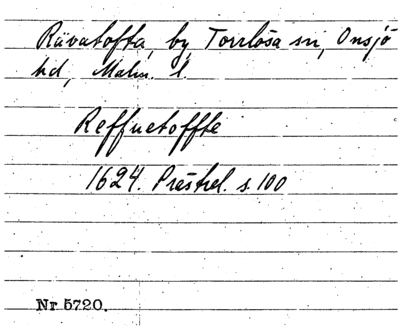 Rävatofta, by, Torrlösa sn, Onsjö
hd, Malm. l.
Reffuetoffte
1624. Prästrel. s. 100
Nr 5720.